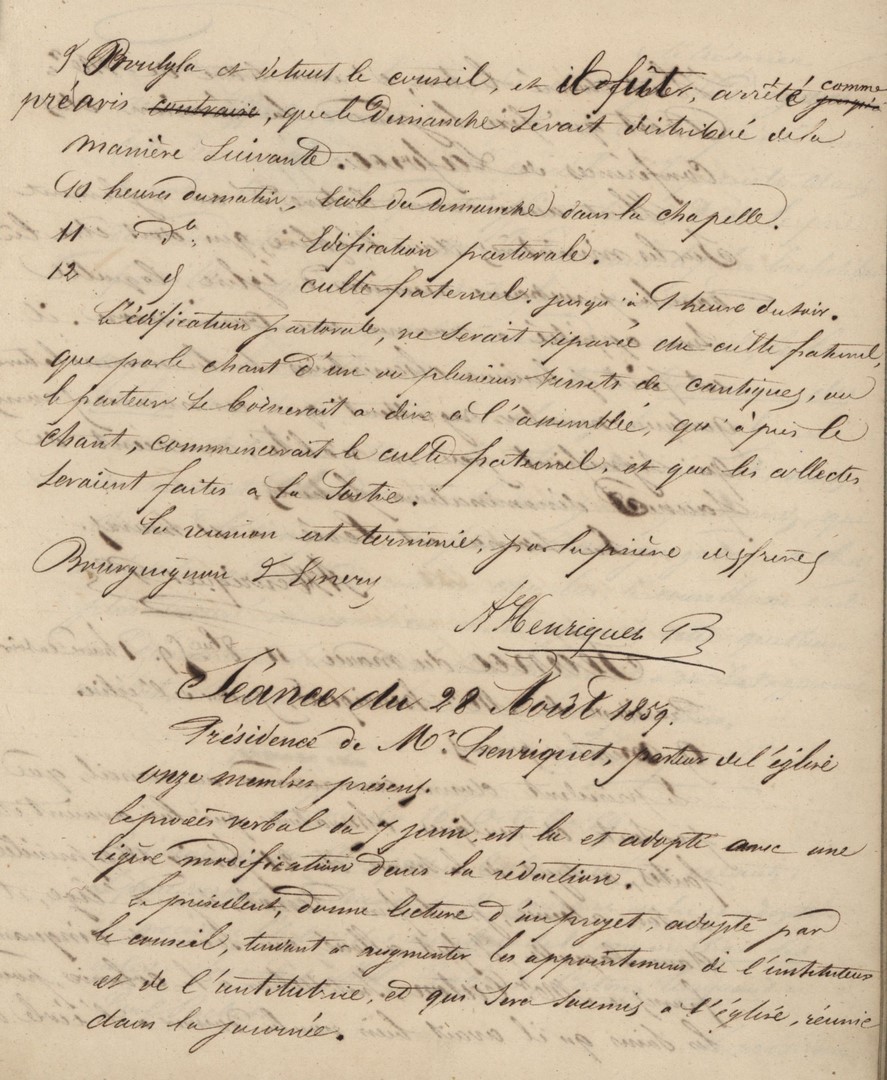 & Broutyla et de tout le conseil, et il fût, arrêté comme
préavis contraire, que le Dimanche serait distribué de la
manière suivante
10 heures du matin, Ecole du dimanche dans la chapelle.
11 do. Edification pastorale.
12 d culte fraternel. jusqu'à 1 heure du soir.
L'édification pastorale, ne serait séparée du culte fraternel,
que par le chant d'un ou plusieurs versets de cantiques, ou
le pasteur se bornerait a dire à l'assemblée, qu'après le
chant, commencerait le culte fraternel, et que les collectes
seraient faites a la Sortie.
La reunion est terminée, par la prière des frères
Bourguignon & Emery
A Henriquet P
Séance du 28 Août 1859.
Présidence de Mr. Henriquet, pasteur de l'église
onze membres présens.
Le procès verbal du 7 juin, est lu et adopté avec une
légère modification dans la rédaction.
Le président, donne lecture d'un projet, adopté par
le conseil, tendant a augmenter les appointemens de l'instituteur
et de l'institutrice, et qui sera soumis a l'église, réunie
dans la journée.